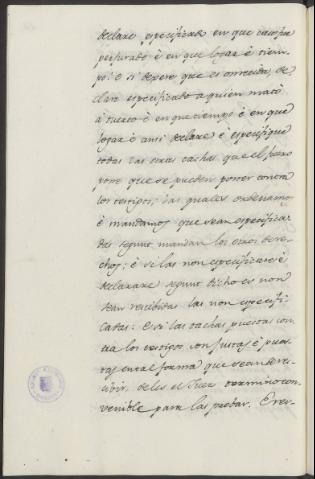 declare, especificado en que caso fue
perjurado è en que logar è tiem-
po: è si dixere que es omecida, de-
clare especificado a quien mató
à tuerto è en que tiempo è en que
logar è ansi declare è especifique
todas las otras tachas que el fuero
pone que se pueden poner contra
los testigos; las quales ordenamos
è mandamos que sean especifica-
das segunt mandan los otros dere-
chos; è si las non especificare è
declarare segunt dicho es non
sean rescebidas las non especifi-
cadas: è si las tachas puestas con-
tra los testigos son justas è pues-
tas en tal forma que se an de res-
cibir, deles el Juez termino con-
venible para las probar. E res-